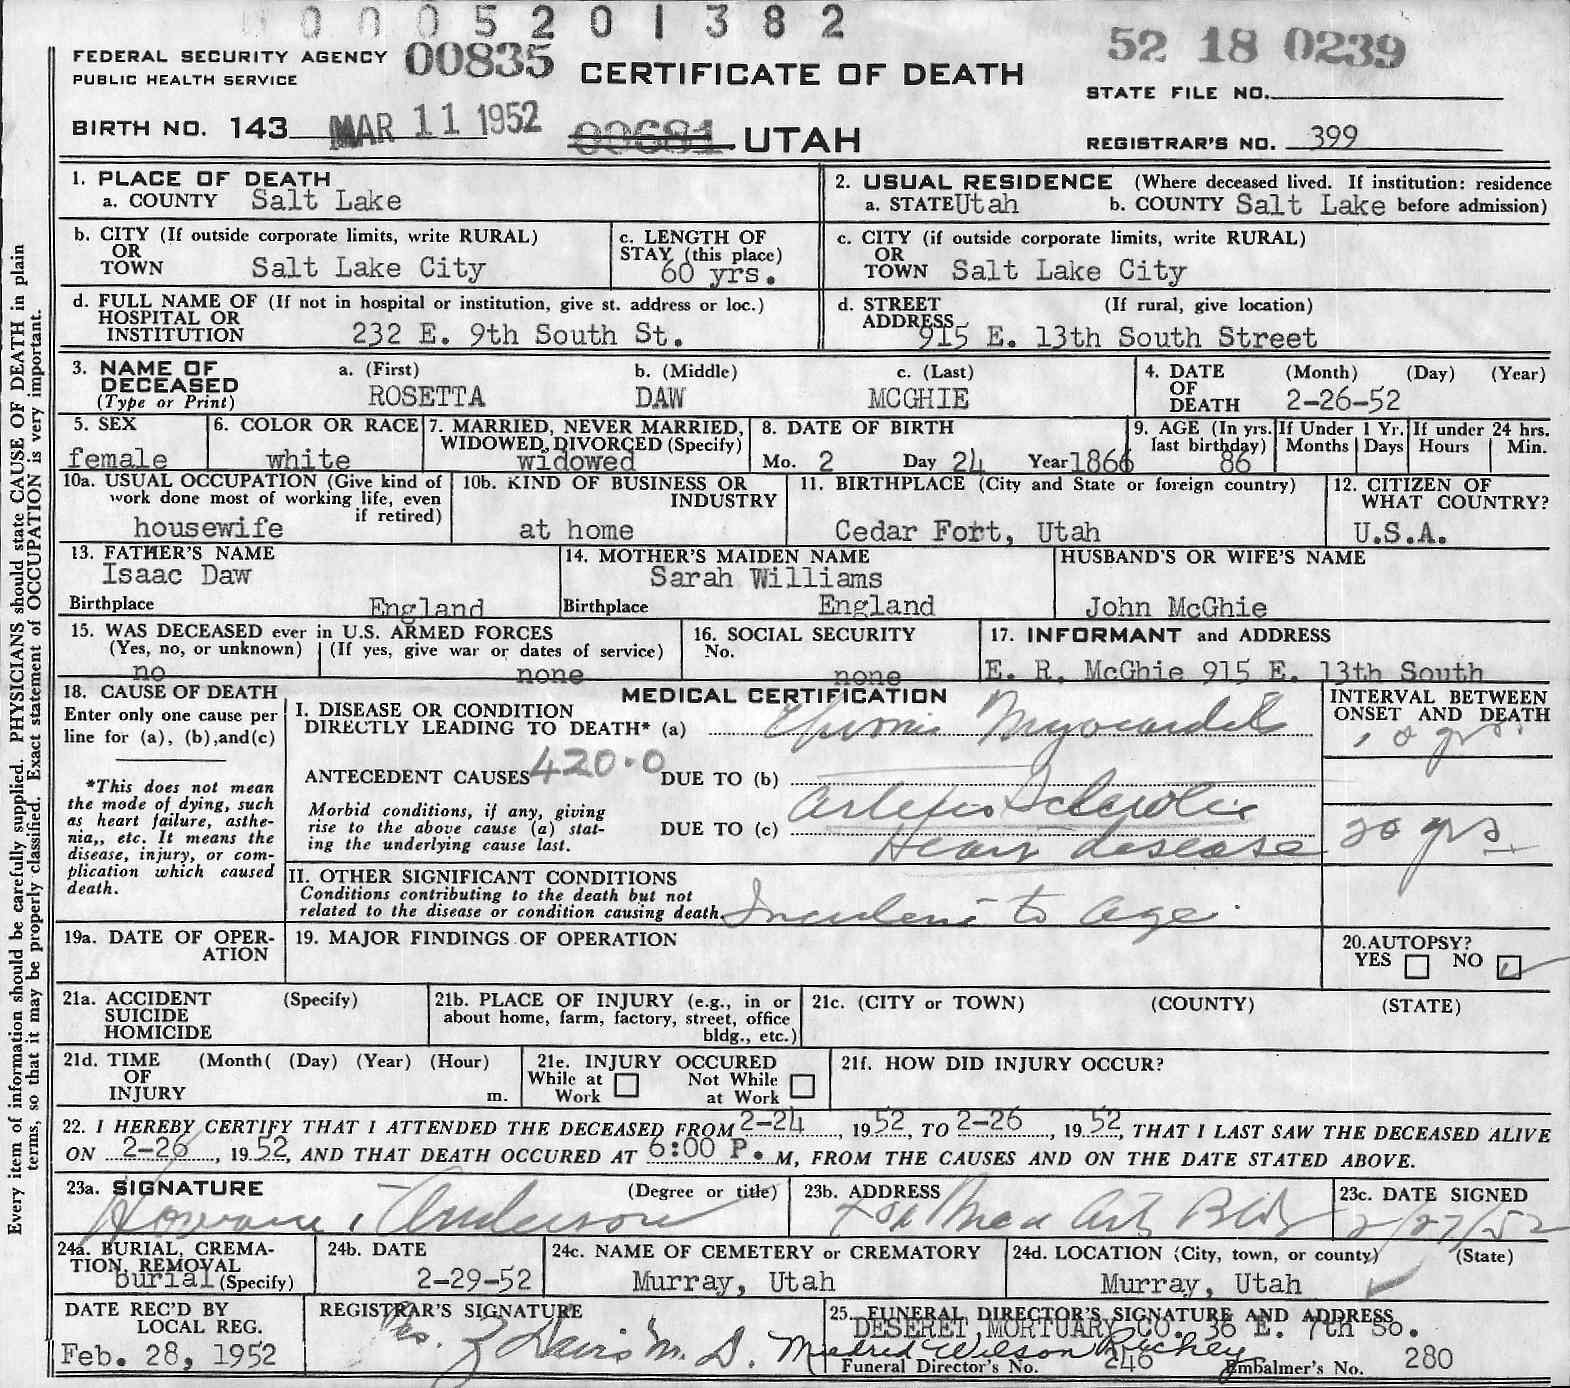 00005201382
FEDERAL SECURITY AGENCY 00835 CERTIFICATE OF DEATH 52 18 0239
PUBLIC HEALTH SERVICE
STATE FILE NO.
BIRTH NO. 143 MAR 11 1952 00681 UTAH
REGISTRAR'S NO. 399
1. PLACE OF DEATH
a. COUNTY Salt Lake
2. USUAL RESIDENCE (Where deceased lived. If institution: residence
a. STATE Utah b. COUNTY Salt Lake before admission)
b. CITY (If outside corporate limits, write RURAL)
OR
TOWN Salt Lake City
c. LENGTH OF
STAY (this place)
60 yrs.
c. CITY (if outside corporate limits, write RURAL)
OR
TOWN Salt Lake City
d. FULL NAME OF (If not in hospital or institution, give st. address or loc.)
HOSPITAL OR
INSTITUTION 232 E. 9th South St.
d. STREET (If rural, give location)
ADDRESS
915 E. 13th South Street
3. NAME OF a. (First) b. (Middle) c. (Last)
DECEASED
(Type or Print) ROSETTA DAW MCGHIE
4. DATE (Month) (Day) (Year)
OF
DEATH 2-26-52
5. SEX
female
6. COLOR OR RACE
white
7. MARRIED, NEVER MARRIED,
WIDOWED, DIVORCED (Specify)
widowed
8. DATE OF BIRTH
Mo. 2 Day 24 Year 1866
9. AGE (In yrs.
last birthday)
86
If Under 1 Yr.
Months Days
If under 24 hrs.
Hours Min.
10a. USUAL OCCUPATION (Give kind of
work done most of working life, even
if retired)
housewife
10b. KIND OF BUSINESS OR
INDUSTRY
at home
11. BIRTHPLACE (City and State or foreign country)
Cedar Fort, Utah
12. CITIZEN OF
WHAT COUNTRY?
U.S.A.
13. FATHER'S NAME
Isaac Daw
Birthplace England
14. MOTHER'S MAIDEN NAME
Sarah Williams
Birthplace England
HUSBAND'S OR WIFE'S NAME
John McGhie
15. WAS DECEASED ever in U.S. ARMED FORCES
(Yes, no, or unknown) (If yes, give war or dates of service)
no none
16. SOCIAL SECURITY
No.
none
17. INFORMANT and ADDRESS
E. R. McGhie 915 E. 13th South
18. CAUSE OF DEATH
Enter only one cause per
line for (a), (b), and (c)
*This does not mean
the mode of dying, such
as heart failure, asthe-
nia,, etc. It means the
disease, injury, or com-
plication which caused
death.
MEDICAL CERTIFICATION
I. DISEASE OR CONDITION
DIRECTLY LEADING TO DEATH* (a) Chronic Myocarditis
ANTECEDENT CAUSES 420.0 DUE TO (b)
Morbid conditions, if any, giving
rise to the above cause (a) stat-
ing the underlying cause last.
Arterio Sclerotic
DUE TO (c)
Heart disease
INTERVAL BETWEEN
ONSET AND DEATH
10 yrs.
20 yrs
II. OTHER SIGNIFICANT CONDITIONS
Conditions contributing to the death but not
related to the disease or condition causing death. to age
19a. DATE OF OPER-
ATION
19. MAJOR FINDINGS OF OPERATION
20. AUTOPSY?
YES NO
21a. ACCIDENT (Specify)
SUICIDE
HOMICIDE
21b. PLACE OF INJURY (e.g., in or
about home, farm, factory, street, office
bldg., etc.)
21c. (CITY or TOWN) (COUNTY) (STATE)
21d. TIME (Month( (Day) (Year) (Hour)
OF
INJURY m.
21e. INJURY OCCURED
While at Work
Not While at Work
21f. HOW DID INJURY OCCUR?
22. I HEREBY CERTIFY THAT I ATTENDED THE DECEASED FROM 2-24, 19 52, TO 2-26, 19 52, THAT I LAST SAW THE DECEASED ALIVE
ON 2-26, 19 52, AND THAT DEATH OCCURED AT 6:00 P. M, FROM THE CAUSES AND ON THE DATE STATED ABOVE.
23a. SIGNATURE (Degree or title)
Anderson
23b. ADDRESS
Med Arts Bldg
23c. DATE SIGNED
2/27/52
24a. BURIAL, CREMA-
TION, REMOVAL
burial (Specify)
24b. DATE
2-29-52
24c. NAME OF CEMETERY or CREMATORY
Murray, Utah
24d. LOCATION (City, town, or county) (State)
Murray, Utah
DATE REC'D BY
LOCAL REG.
Feb. 28, 1952
REGISTRAR'S SIGNATURE
Davis M. D.
25. FUNERAL DIRECTOR'S SIGNATURE AND ADDRESS
DESERET MORTUARY CO. 36 E. 7th So.
Mildred Wilson Richey
Funeral Director's No. 246 Embalmer's No. 280
Every item of information should be carefully supplied. PHYSICIANS should state CAUSE OF DEATH in plain
terms, so that it may be properly classified. Exact statement of OCCUPATION is very important.